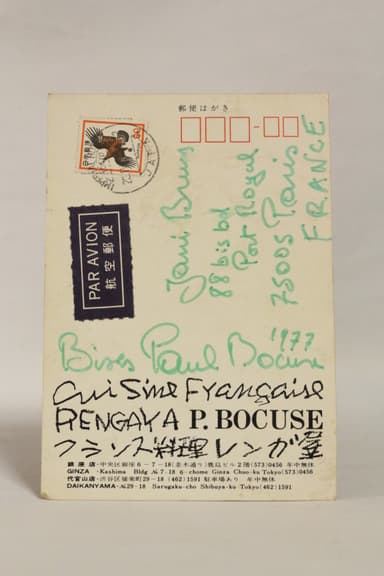 郵便はがき
日本郵便
80
JAPAN
PAR AVION
航空郵便
88 bis bd
Port Royal
75005 Paris
FRANCE
Bises Paul Bocuse 1977
Cuisine Française
RENGAYA P. BOCUSE
フランス料理レンガ屋
銀座店・中央区銀座6-7-18(並木通り)鹿島ビル2階(573)0456 年中無休
GINZA -Kashima Bldg №7-18 6-chome Ginza Chuo-ku Tokyo(573)0456
代官山店・渋谷区猿楽町29-18 (462)1591 駐車場あり 年中無休
DAIKANYAMA-№29-18 Sarugaku-cho Shibuya-ku Tokyo(462)1591